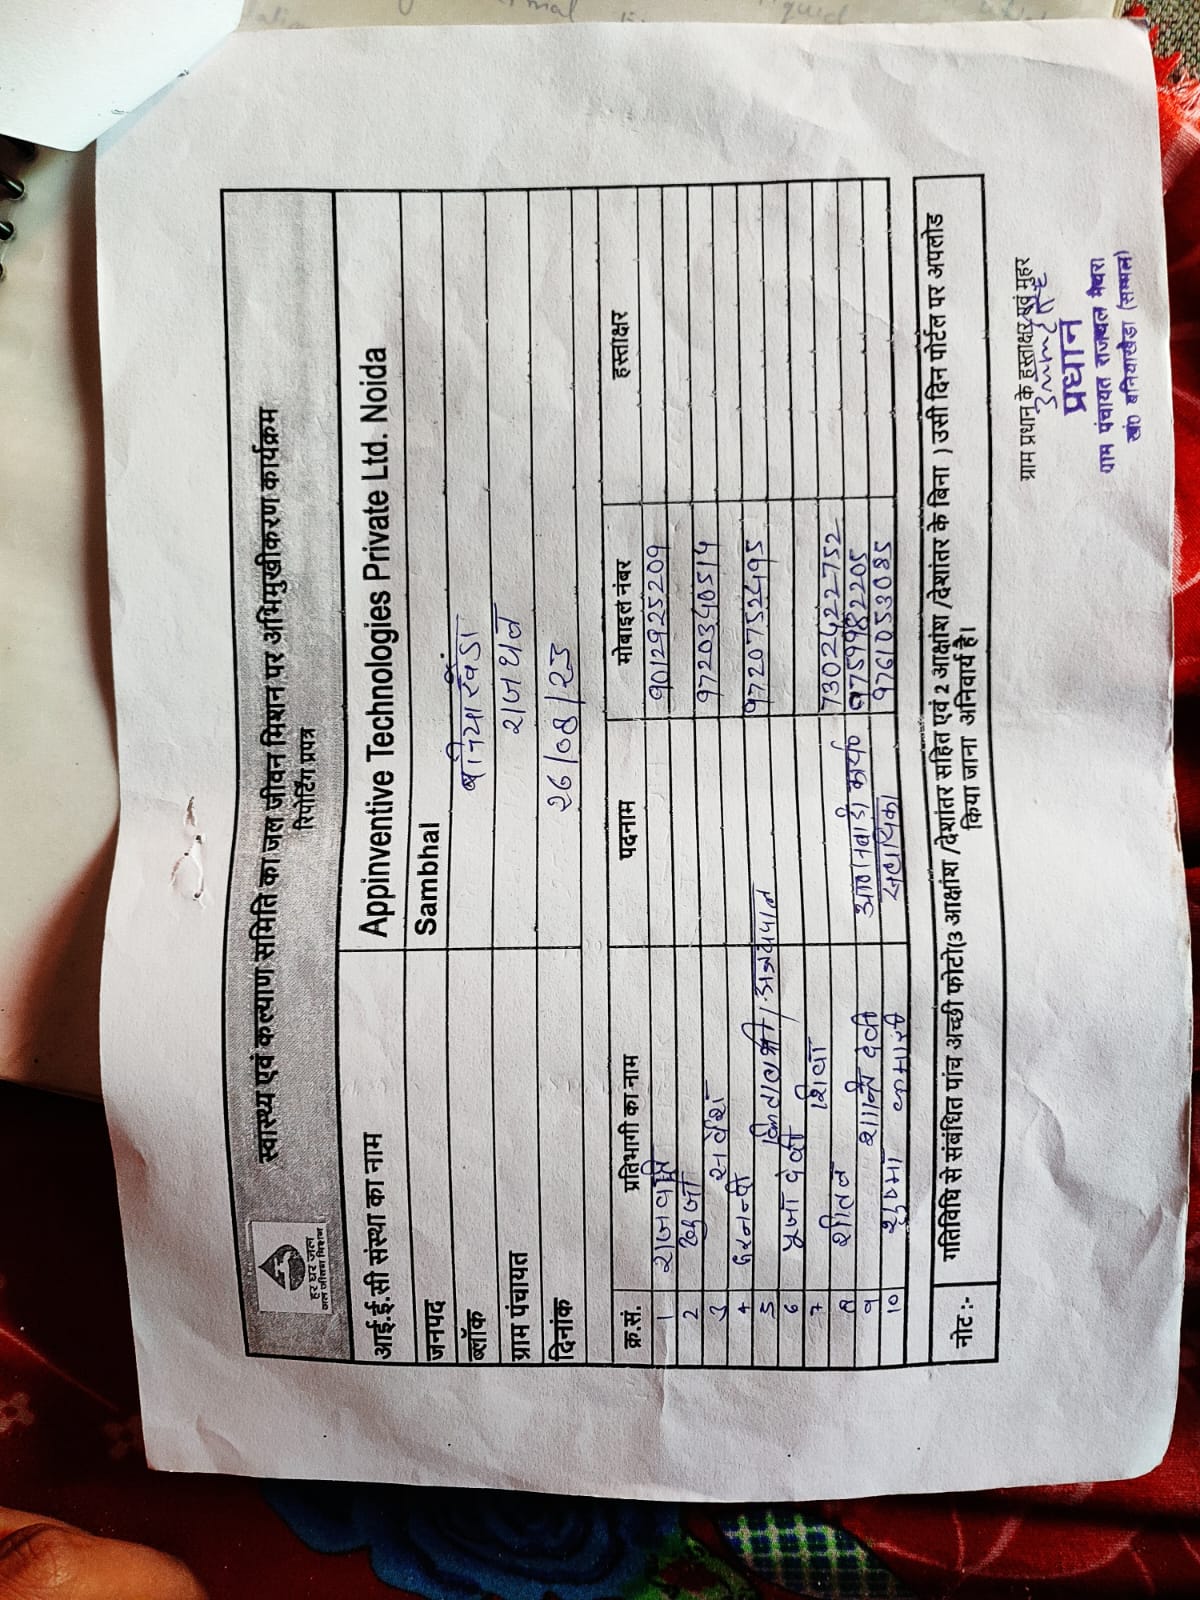 हर घर जल
जल जीवन मिशन
स्वास्थ्य एवं कल्याण समिति का जल जीवन मिशन पर अभिमुखीकरण कार्यक्रम
रिपोर्टिंग प्रपत्र
आई.ई.सी संस्था का नाम Appinventive Technologies Private Ltd. Noida
जनपद Sambhal
ब्लॉक बनियाखेडा
ग्राम पंचायत राजथल
दिनांक 26/08/23
क्र.सं. प्रतिभागी का नाम पदनाम मोबाइल नंबर हस्ताक्षर
1 9012925209
2
3 सर्वेश 9720340514
4
5 9720752495
6 पूजा देवी
7 शिवा
8 शीतल 7302422752
9 शान्ति देवी आंगनबाडी कार्य० 9759982205
10 कुमारी सहायिका 9761053085
नोट :- गतिविधि से संबंधित पांच अच्छी फोटो(3 आक्षांश /देशांतर सहित एवं 2 आक्षांश /देशांतर के बिना ) उसी दिन पोर्टल पर अपलोड
किया जाना अनिवार्य है।
ग्राम प्रधान के हस्ताक्षर एवं मुहर
प्रधान
ग्राम पंचायत राजथल
खं० बनियाखेड़ा (सम्भल)